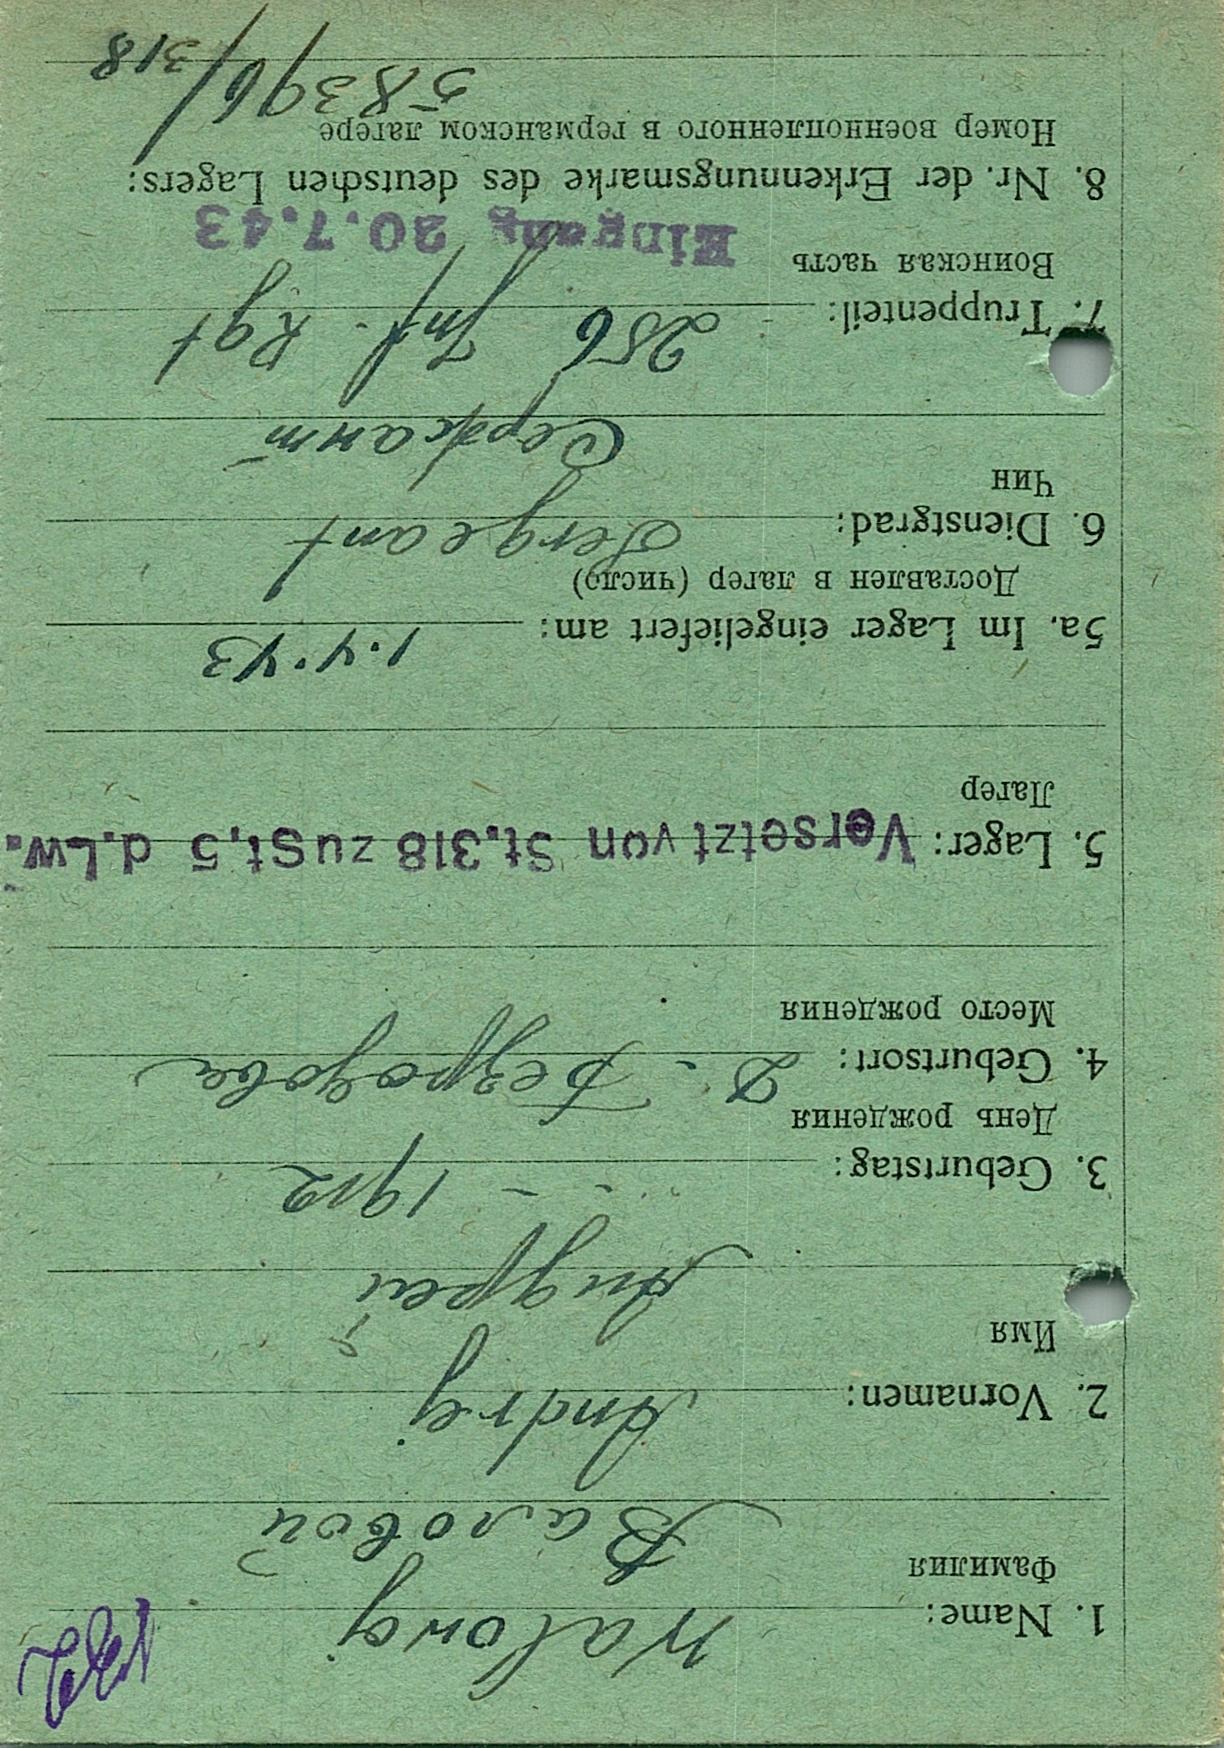 1. Name: Walowoj
Фамилия Валовой
2. Vornamen: Andrej
Имя Андрей
3. Geburtstag: - - 1912
День рождения
4. Geburtsort: д. Безродова
Место рождения
5. Lager: Versetzt von St.318 zu St.5 d.Lw.
Лагер
5a. Im Lager eingeliefert am: 1.4.43
Доставлен в лагер (число)
6. Dienstgrad: Sergeant
Чин Сержант
7. Truppenteil: 256 Inf. Rgt
Воинская часть Eingang 20.7.43
8. Nr. der Erkennungsmarke des deutschen Lagers:
Номер военнопленного в германском лагере
58396/318